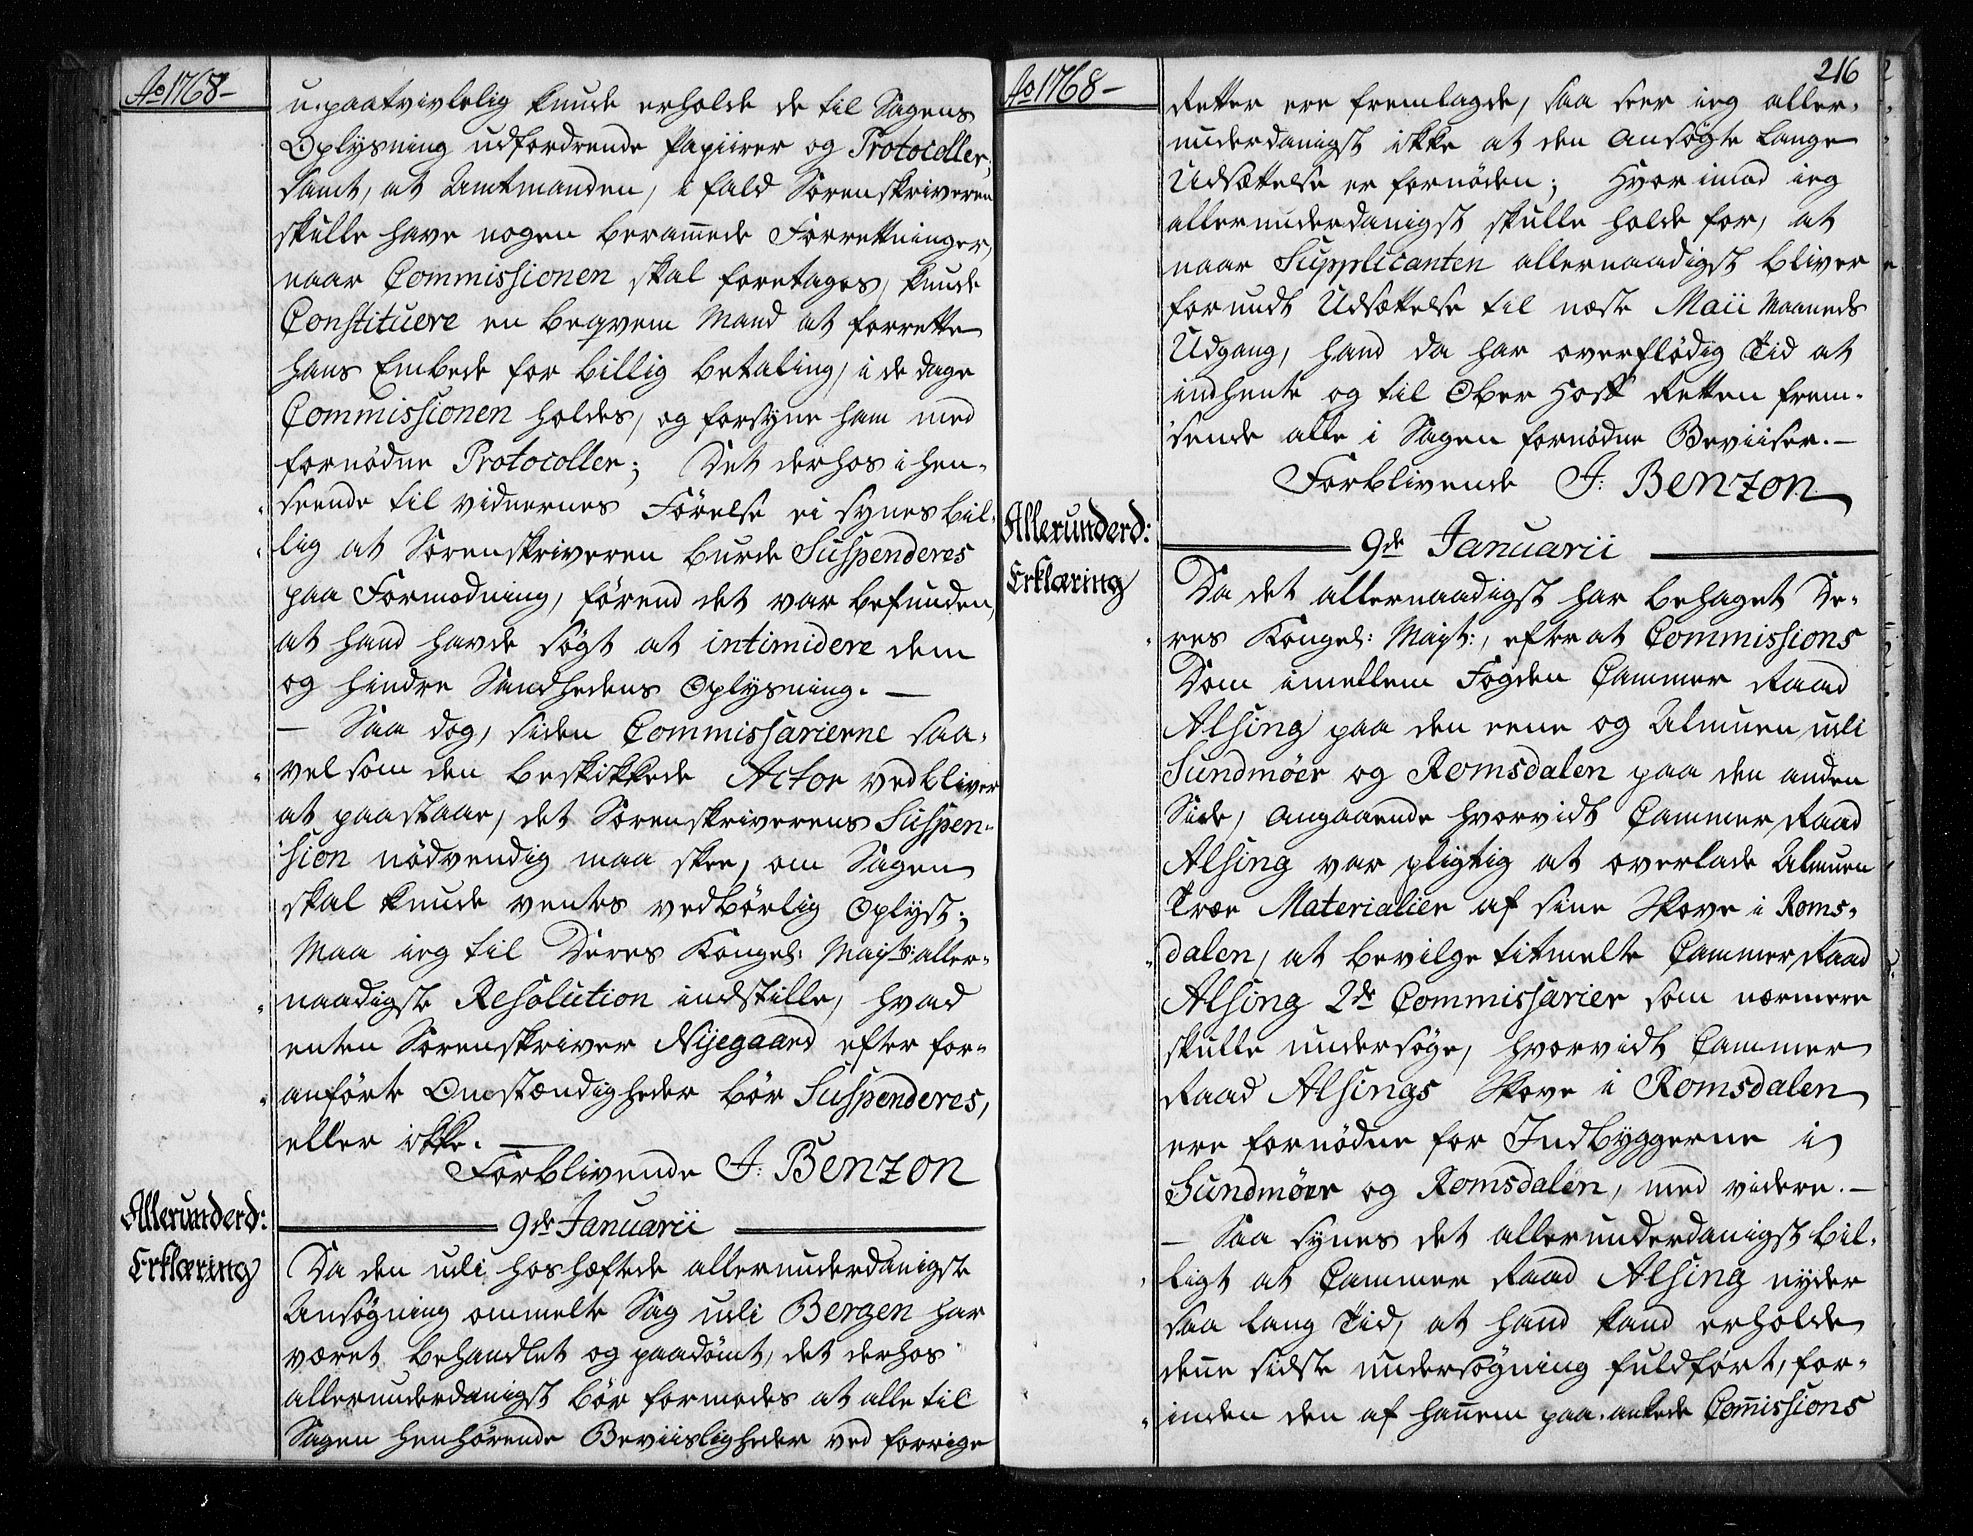 Ao 1768–
u-paatvivlelig kunde erholde de til Sagens
Oplysning udfordrende Papiirer og Protocoller,
samt, at Amtmanden, i fald Sorenskriveren
skulle have nogen beram̅ede Forrettninger,
naar Commissionen skal foretages, kunde
Constituere en beqvem Mand at forrette
hans Embede for billig betaling, i de dage
Commissionen holdes, og forsyne ham med
fornødne Protocoller; Det derhos i hen-
seende til vidnernes Førelse ei synes bil-
lig at Sorenskriveren burde Suspenderes
paa Formodning, førend det var befunden,
at hand havde søgt at intimidere dem
og hindre Sandhedens Oplysning. –
– Saa dog, siden Commissarierne saa-
vel som den beskikkede Actor vedbliver
at paastaae, det Sorenskriverens Suspen-
sion nødvendig maa skee, om Sagen
skal kunde ventes vedbørlig Oplyst;
Maa ieg til Deres Kongel: Mayts: aller-
naadigste Resolution indstille, hvad
enten Sorenskriver Nijegaard efter for-
anførte Omstændigheder bør Suspenderes,
eller ikke. –
Forblivende J: Benzon
Allerunderd:
Erklæring
9de Januarii
Da den udi hoshæftede allerunderdanigste
Ansøgning ommelte Sag udi Bergen har
været behandlet og paadømt, det derhos
allerunderdanigst bør formodes at alle til
Sagen henhørende Beviisligheder ved forrige
Ao 1768–
216
Retter ere fremlagde, saa seer ieg aller-
underdanigst ikke at den ansøgte lange
Udsættelse er fornøden; Hvorimod ieg
allerunderdanigst skulle holde for, at
naar Supplicanten allernaadigst bliver
forundt Udsættelse til næste Maii Maaneds
Udgang, hand da har overflødig Tid at
indhente og til Ober Hoff Retten frem-
sende alle i Sagen fornødne Beviiser. –
Forblivende J: Benzon
Allerunderd:
Erklæring
9de Januarii
Da det allernaadigst har behaget De-
res Kongel: Mayt:, efter at Commissions
Dom imellem Fogden Cammer Raad
Alsing paa den eene og Almuen udi
Sundmøer og Romsdalen paa den anden
Side, angaaende hvorvidt Cammer Raad
Alsing var pligtig at overlade Almuen
Træe Materialier af sine Skove i Roms-
dalen, at bevilge titmelte Cammer Raad
Alsing 2de Commissarier som nærmere
skulle undersøge, hvorvidt Cammer
Raad Alsings Skove i Romsdalen
ere fornødne for Indbyggerne i
Sundmøer og Romsdalen, med videre. –
– Saa synes det allerunderdanigst bil-
ligt at Cammer Raad Alsing nyder
saa lang Tid, at hand kand erholde
den̅e sidste undersøgning fuldført, for-
inden den af han̅em paa-ankede Com̅issions